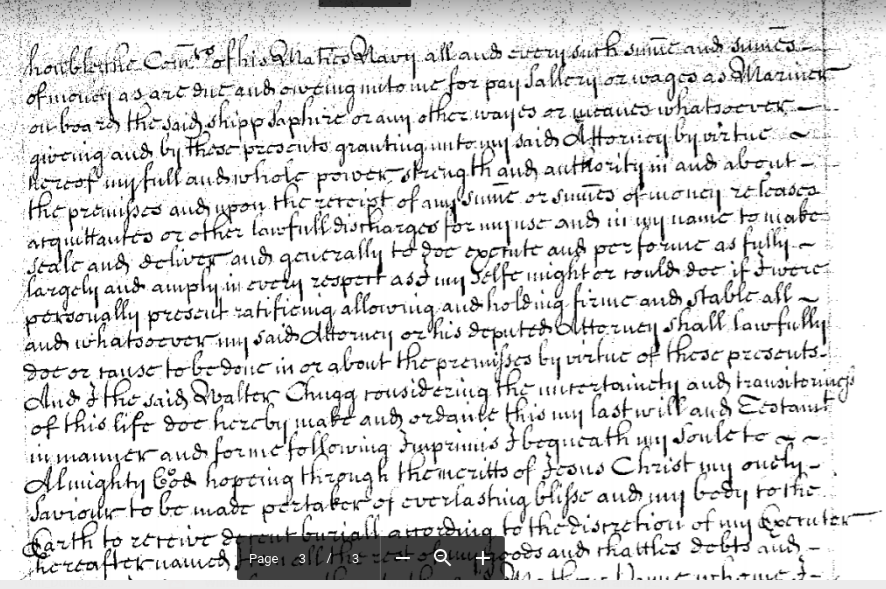 honble the Com.rs of his Maties Navy all and every such sume and sumes
of money as are due and oweing unto me for pay sallery or wages as Mariner
on board the said shipp Saphire or any other wayes or meanes whatsoever
giveing and by these presents granting unto my said Attorney by virtue
hereof my full and whole power strength and authority in and about
the premisses and upon the receipt of any sume or sumes of money releases
acquittances or other lawfull discharges for my use and in my name to make
seale and deliver and generally to doe execute and performe as fully
largely and amply in every respect as I my selfe might or could doe if I were
personally present ratifieing allowing and holding firme and stable all
and whatsoever my said Attorney or his deputed Attorney shall lawfully
doe or cause to be done in or about the premisses by virtue of these presents
And I the said Walter Chugg considering the uncertainety and transitoriness
of this life doe hereby make and ordaine this my last will and Testamt
in manner and forme following Imprimis I bequeath my Soule to
Almighty God hopeing through the meritts of Jesus Christ my onely
Saviour to be made pertaker of everlasting blisse and my body to the
Earth to receive decent buriall according to the discretion of my Executer
hereafter named all the rest of my goods and chattles debts and
Page 3 / 3